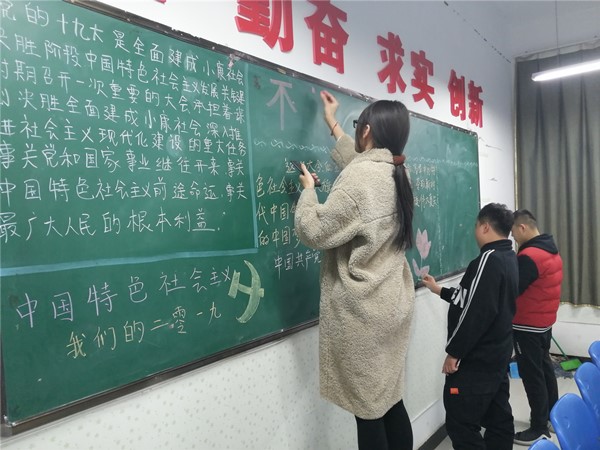 勤奋 求实 创新
党的十九大是全面建成小康社会
决胜阶段中国特色社会主义发展关键
时期召开一次重要的大会承担着谋
划决胜全面建成小康社会深入推
进社会主义现代化建设的重大任务
事关党和国家事业继往开来事关
中国特色社会主义前途命运事关
最广大人民的根本利益.
中国特色社会主义
我们的二零一九
不
色社会主义
代中国
的中国
中国共产党